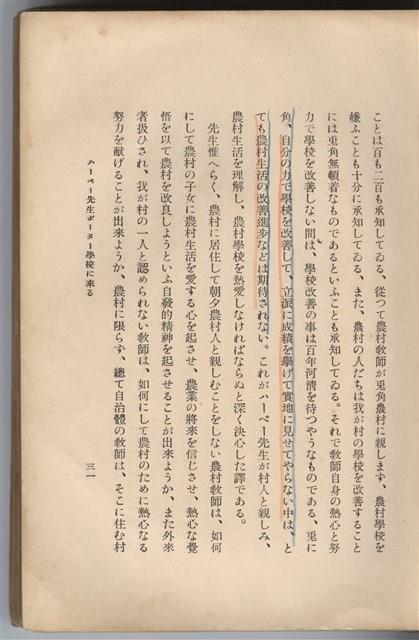 ことは百も二百も承知してゐる、從つて農村敎師が兎角農村に親します、農村學校を
嫌ふことも十分に承知してゐる、また、農村の人だちは我が村の學校を改善すること
には兎角無頓着なものであるといふことも承知してゐる。それで敎師自身の熱心と努
力で學校を改善しない間は、學校改善の事は百年河淸を待つやうなものである、兎に
角、自分の力で學校を改善して、立派に成績を擧げて實地に見せてやらない中は、と
ても農村生活の改善進步などは期待されない。これがハーベー先生が村人と親しみ、
農村生活を理解し、農村學校を熱愛しなければならぬと深く決心した譯である。
先生惟へらく、農村に居住して朝夕農村人と親しむことをしない農村敎師は、如何
にして農村の子女に農村生活を愛する心を起させ、農業の將來を信じさせ、熱心な覺
悟を以て農村を改良しようといふ自發的精神を起させることが出來ようか、また外來
者扱ひされ、我が村の一人と認められない敎師は、如何にして農村のために熱心なる
努力を献げることが出來ようか、農村に限らず、總て自治體の敎師は、そこに住む村
ハーベー先生ポーター學校に來る
三一